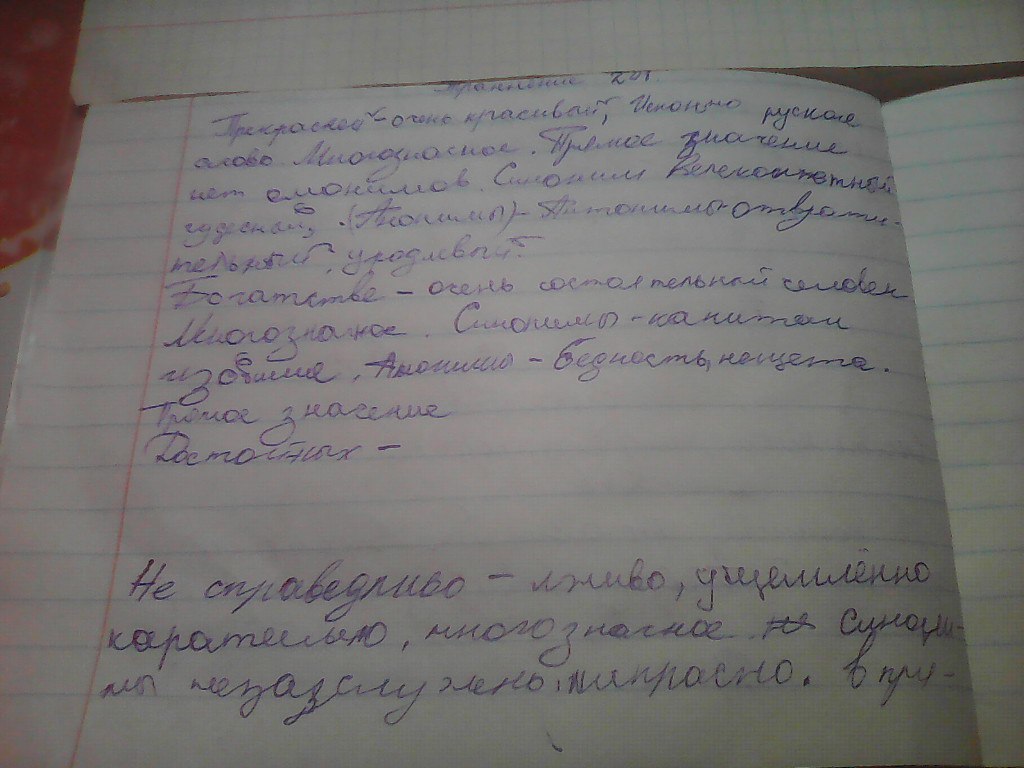 Упражнение 201.
Прекрасный - очень красивый, Исконно руское
слово. Многозначное. Прямое значение
нет омонимов. Синоним Великолепный
чудесный, (Анонимы) - Антонимы отврати-
тельный, уродливый.
Богатстве - очень состоятельный человек
Многозначное. Синонимы - капитал
изобилие. Анонимы - бедность, нещета.
Прямое значение
Достойных -
Не справедливо - лживо, ущемлённо
карательно, многозначное Синони-
мы незаслужено, напрасно. в пря-